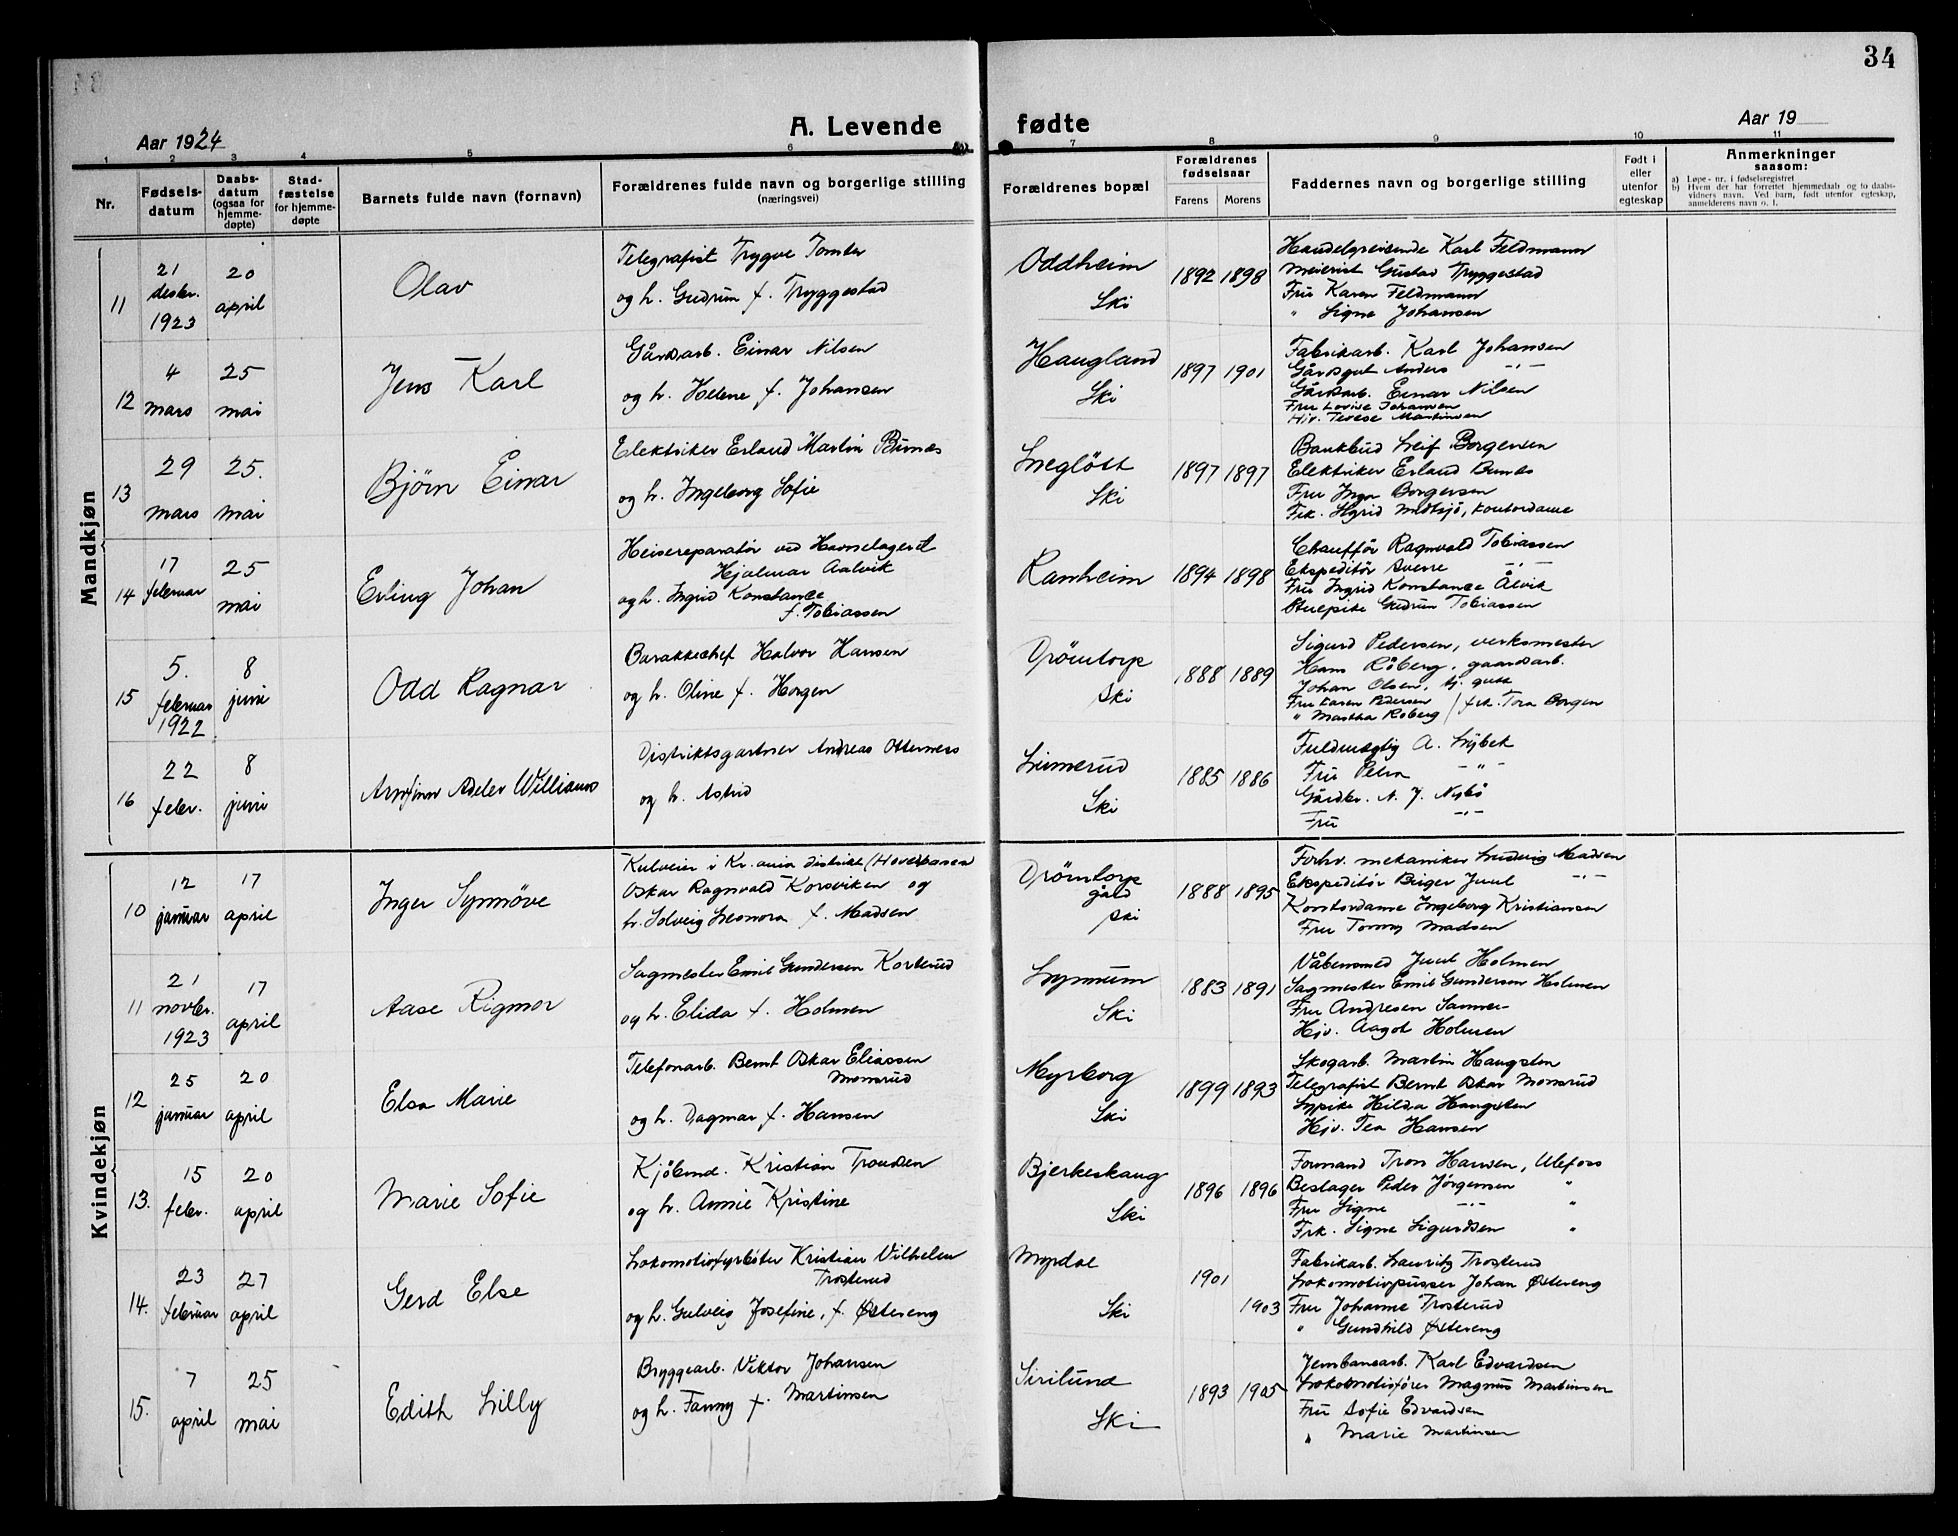 34
Aar 1924
A. Levende fødte
Aar 19
1 2 3 4 5 6 7 8 9 10 11
Nr.
Fødsels-
datum
Daabs-
datum
(ogsaa for
hjemme-
døpte)
Stad-
fæstelse
for hjemme-
døpte
Barnets fulde navn (fornavn)
Forældrenes fulde navn og borgerlige stilling
(næringsvei)
Forældrenes bopæl
Forældrenes
fødselsaar
Farens Morens
Faddernes navn og borgerlige stilling
Født i
eller
utenfor
egteskap
Anmerkninger
saasom:
a) Løpe-nr. i fødselsregistret
b) Hvem der har forrettet hjemmedaab og to daabs-
vidners navn. Ved barn, født utenfor egteskap,
anmelderens navn o. l.
Mandkjøn
11
21
desbr.
1923
20
april
Olav
Telegrafist Trygve Tomter
og h. Gudrun f. Tryggestad
Oddheim
Ski
1892 1898
Handelsreisende Karl Feldmann
Meierist Gustav Tryggestad
Fru Karen Feldmann
" Signe Johansen
12
4
mars
25
mai
Jens Karl
Gårdsarb. Einar Nilsen
og h. Helene f. Johansen
Haugland
Ski
1897 1901
Fabrikarb. Karl Johansen
Gårdsgut Anders -"-
Gårdsarb. Einar Nilsen
Fru Lovise Johansen
Hjv. Terese Martinsen
13
29
mars
25.
mai
Bjørn Einar
Elektriker Erland Martin Bunæs
og h. Ingeborg Sofie
Ski
1897 1897
Bankbud Leif Borgersen
Elektriker Erland Bunæs
Fru Inga Borgersen
Frk. Sigrid Midtsjø, kontordame
14
17
februar
25
mai
Erling Johan
Heisereparatør ved Havnelageret
Hjalmar Aalvik
og h. Ingrid Konstance
f. Tobiassen
Ramheim
1894 1898
Chauffør Ragnvald Tobiassen
Ekspeditør Sverre -"-
Fru Ingrid Konstance Ålvik
Stuepike Gudrun Tobiassen
15
5.
februar
1922
8
juni
Odd Ragnar
Barakkechef Halvor Hansen
og h. Oline f. Horgen
Drömtorp
Ski
1888 1889
Sigurd Pedersen, verksmester
Hans Råberg, gaardsarb.
Johan Olsen, tj. gutt
Fru Karen Pedersen / frk. Tora Borgen
" Martha Roberg
16
22
febr.
8
juni
Arnfinn Adeler Williams
Distriktsgartner Andreas Otterness
og h. Astrid
Limerud
Ski
1885 1886
Fuldmægtig A. Lybek
Fru Petra -"-
Gårdbr. N. J. Nybø
Fru -"-
Kvindekjøn
10
12
januar
17
april
Inger Synnöve
i Kr.ania distrikt (Hovedbanen
Oskar Ragnvald Korsviken og
h. Solveig Leonora f. Madsen
Drömtorp
gård
Ski
1888 1895
Forhv. mekaniker Ludvig Madsen
Ekspeditör Birger Juul -"-
Kontordame Ingeborg Kristiansen
Fru Tommy Madsen
11
21
novbr.
1923
17
april
Aase Rigmor
Sagmester Emil Gundersen Korterud
og h. Elida f. Holmen
Ski
1883 1891
Våbensmed Juul Holmen
Sagmester Emil Gundersen Holmen
Fru Andresen Sanner
Hjv. Aagot Holmen
12
25
januar
20
april
Elsa Marie
Telefonarb. Bernt Oskar Eliassen
Monsrud
og h. Dagmar f. Hansen
Myrborg
Ski
1899 1893
Skogarb. Martin Haugsten
Telegrafist Bernt Oskar Monsrud
Sypike Hilda Haugsten
Hjv. Tea Hansen
13.
15
febr.
20
april
Marie Sofie
Kjøbmd. Kristian Trondsen
og h. Annie Kristine
Bjerkeskaug
Ski
1896 1896
Formand Tron Hansen, Ulefoss
Beslager Peder Jørgensen "
Fru Signe -"- "
Frk. Signe Sigurdsen "
14.
23
februar
27
april
Gerd Else
Lokomotivfyrbøter Kristian Vilhelm
Trosterud
og h. Gulveig Josefine, f. Østereng
Myrdal
Ski
1901
1903
Fabrikarb. Lauritz Trosterud
Lokomotivpusser Johan Østereng
Fru Johanne Trosterud
" Gundhild Østereng
15.
7
april
25
mai
Edith Lilly
Bryggearb. Viktor Johansen
og h. Fanny f. Martinsen
Sirilund
Ski
1893 1905
Jernbanearb. Karl Edvardsen
Lokomotivfører Magnus Martinsen
Fru Sofie Edvardsen
" Marie Martinsen